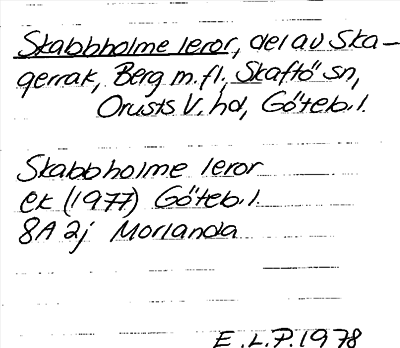 Skabbholme leror, del av Ska-
gerrak, Berg m.fl, Skaftö sn,
Orusts V. hd, Göteb. l.
Skabbholme leror
ek (1977) Göteb. l.
8A 2j Morlanda
E.L.P. 1978